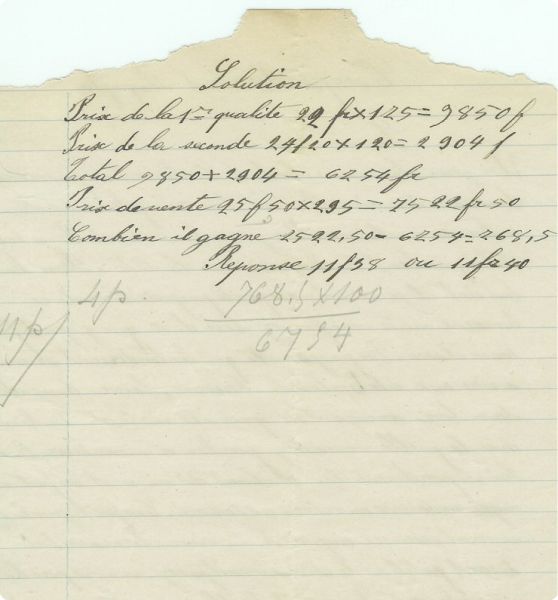 Solution
Prix de la 1re qualité 22 fr × 175 = 3850 f
Prix de la seconde 24f20 × 120 = 2904 f
Total 3850 + 2904 = 6754 fr
Prix de vente 25f50 × 295 = 7522 fr 50
Combien il gagne 7522,50 - 6754 = 768,5
Reponse 11f38 ou 11fr40
4p. 768,5 × 100
11p/ 6754